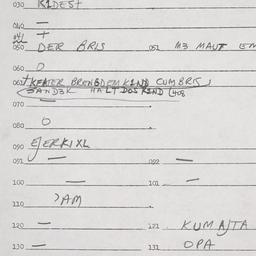 030 KIDEST
040 —
041 +
050 DER BRIS 051 MB MAUT EM
060 O
061 KEATER BRENGDEM KIND CUM BRIS
SANDEK HALT DOS KIND (408
070 —
080 O
090 EJERKIXL
091 — 092 —
100 — 101 —
110 )AM
120 — 121 KUMAJTA
130 — 131 OPA